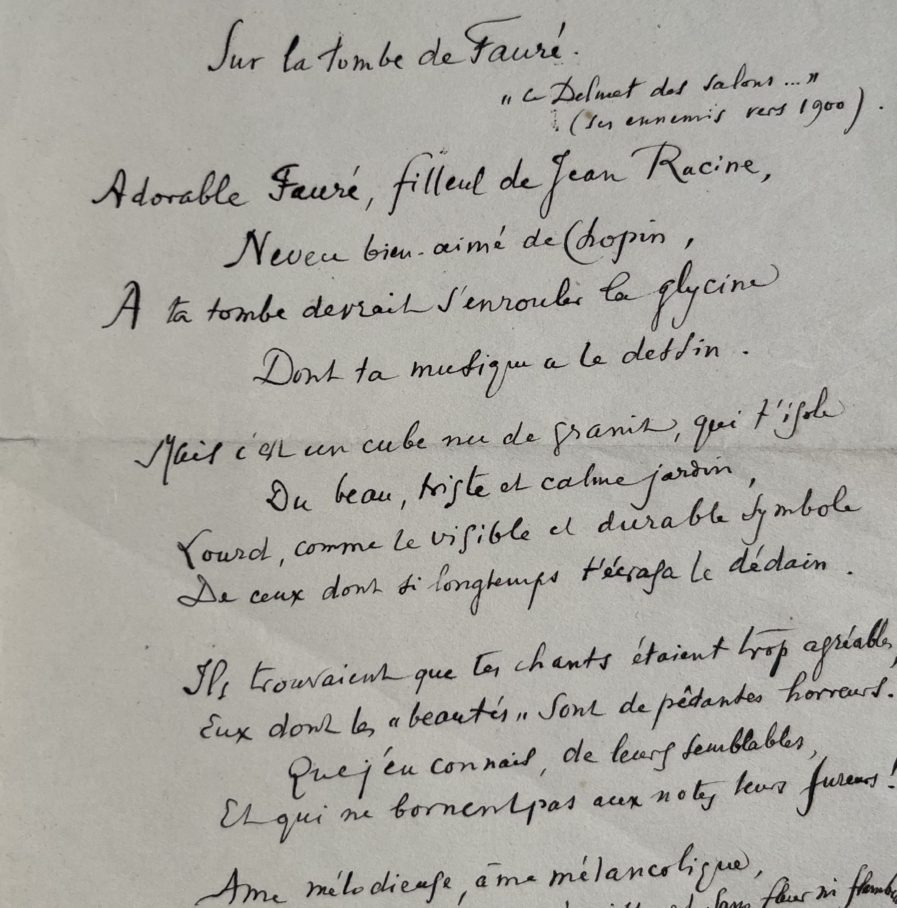 Sur la tombe de Fauré.
"Ce Delmet des salons..."
(ses ennemis vers 1900).
Adorable Fauré, filleul de Jean Racine,
Neveu bien-aimé de Chopin,
A ta tombe devrait s'enrouler la glycine
Dont ta musique a le dessin.
Mais c'est un cube nu de granit, qui t'isole
Du beau, triste et calme jardin,
Lourd, comme le visible et durable symbole
De ceux dont si longtemps t'écrasa le dédain.
Ils trouvaient que tes chants étaient trop agréables,
Eux dont les "beautés" sont de pédantes horreurs.
Que j'en connais, de leurs semblables,
Et qui ne bornent pas aux notes leurs fureurs!
Ame mélodieuse, âme mélancolique,
et sans fleur ni flambeau